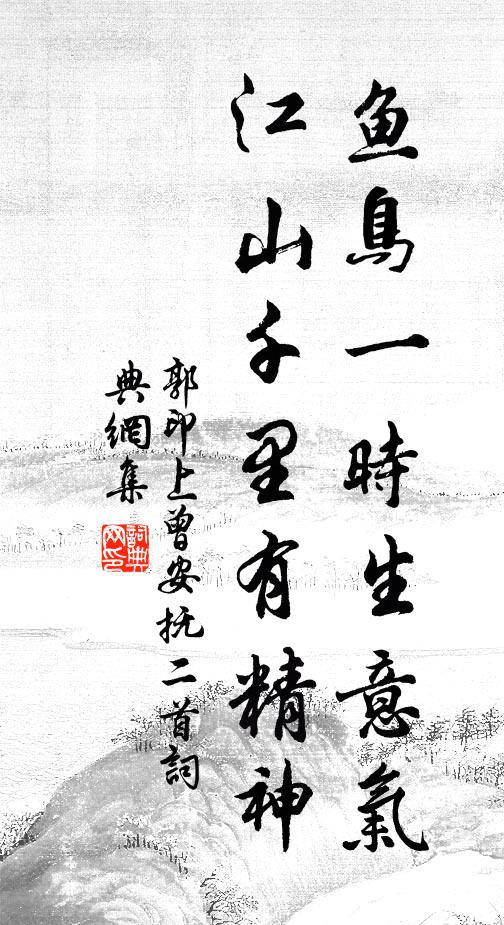 鱼鳥一時生意氣
江山千里有精神
郭印上曾安抚二首詞
典網集
詞典网印